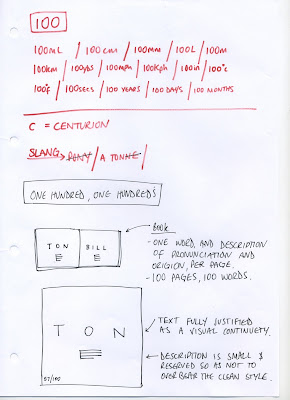 100
100ML / 100cm / 100mm / 100L / 100m
100km / 100yds / 100mph / 100kph / 100in / 100°c
100°f / 100secs / 100 YEARS / 100 DAYS / 100 MONTHS
C = CENTURION
SLANG → / A TONNE /
ONE HUNDRED, ONE HUNDREDS
BOOK
TON BILL
- ONE WORD AND DESCRIPTION
OF PRONUNCIATION AND
ORIGION, PER PAGE.
- 100 PAGES, 100 WORDS.
TON
57/100
TEXT FULLY JUSTIFIED
AS A VISUAL CONTINUETY.
DESCRIPTION IS SMALL &
RESERVED SO AS NOT TO
OVERBEAR THE CLEAN STYLE.